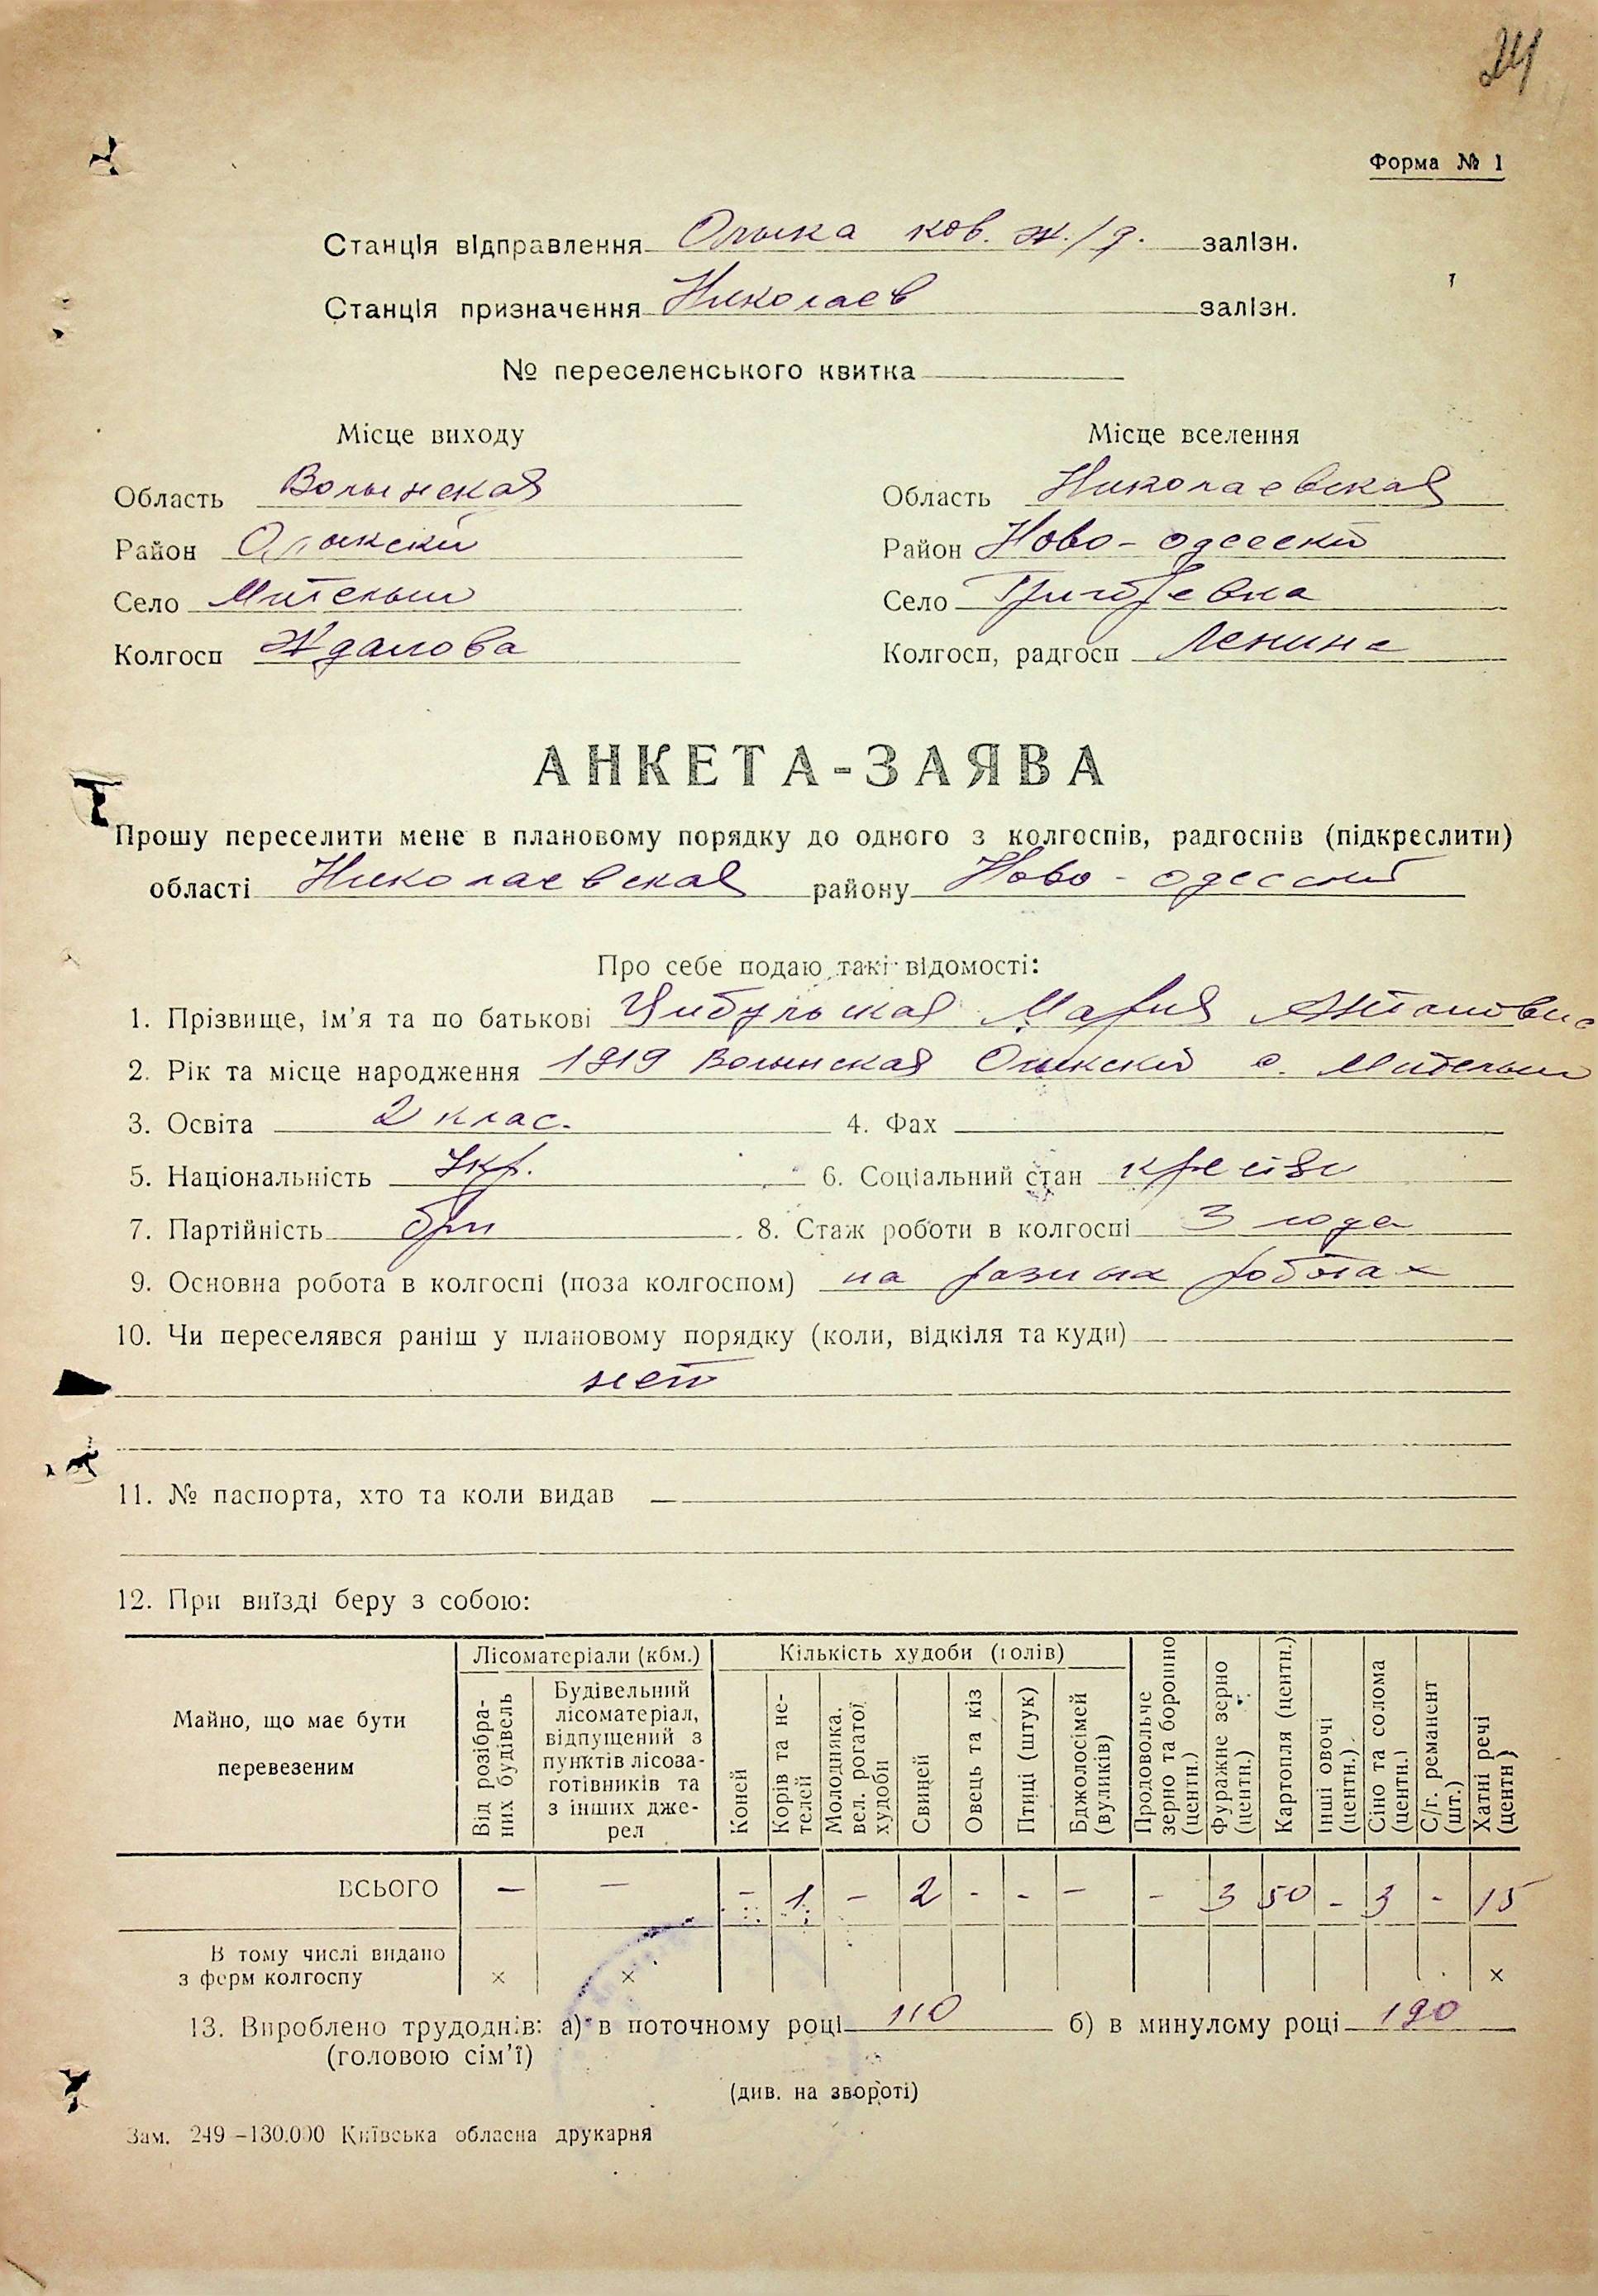 24
Форма № 1
Станція відправлення Олыка ков. ж./д. залізн.
Станція призначення Николаев залізн.
№ переселенського квитка
Місце виходу
Місце вселення
Область Волынская
Область Николаевская
Район Олыкский
Район Ново-одесский
Село Мительно
Село Григорьевка
Колгосп Жданова
Колгосп, радгосп Ленина
АНКЕТА-ЗАЯВА
Прошу переселити мене в плановому порядку до одного з колгоспів, радгоспів (підкреслити)
області Николаевская району Ново-одесский
Про себе подаю такі відомості:
1. Прізвище, ім'я та по батькові Цибульская Мария Антоновна
2. Рік та місце народження 1919 Волынская Олыкский с. Мительно
3. Освіта 2 клас. 4. Фах
5. Національність Укр. 6. Соціальний стан
7. Партійність б/п 8. Стаж роботи в колгоспі 3 года
9. Основна робота в колгоспі (поза колгоспом) на разных работах
10. Чи переселявся раніш у плановому порядку (коли, відкіля та куди)
нет
11. № паспорта, хто та коли видав —
12. При виїзді беру з собою:
Майно, що має бути перевезеним
Лісоматеріали (кбм.)
Кількість худоби (голів)
Від розібраних будівель
Будівельний лісоматеріал, відпущений з пунктів лісозаготівників та з інших джерел
Коней
Корів та нетелей
Молодняка, вел. рогатої худоби
Свиней
Овець та кіз
Птиці (штук)
Бджолосімей (вуликів)
Продовольче зерно та борошно (центн.)
Фуражне зерно (центн.)
Картопля (центн.)
Інші овочі (центн.)
Сіно та солома (центн.)
С/г. реманент (шт.)
Хатні речі (центн.)
ВСЬОГО — — - 1 - 2 - - - - 3 50 - 3 - 15
В тому числі видано з ферм колгоспу × × ×
13. Вироблено трудоднів: а) в поточному році 110 б) в минулому році 190
(головою сім'ї)
(див. на звороті)
Зам. 249-130.000 Київська обласна друкарня